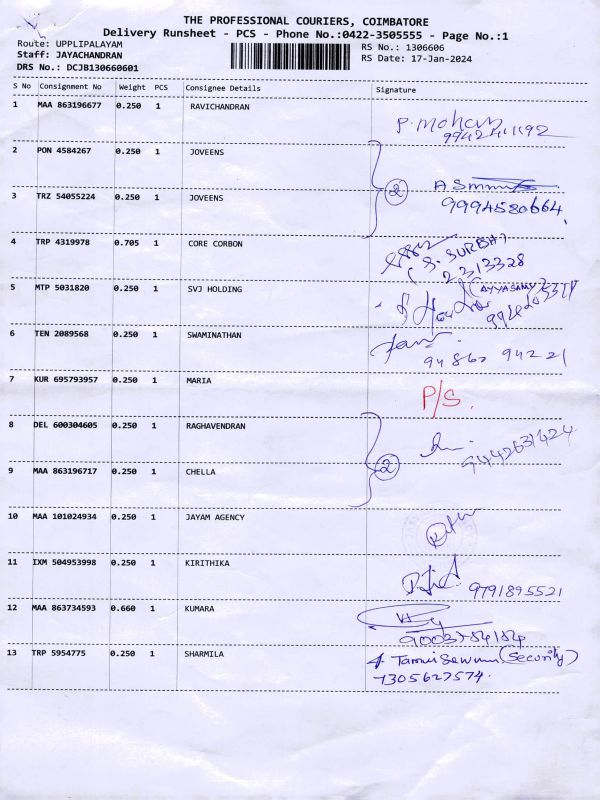 THE PROFESSIONAL COURIERS, COIMBATORE
Delivery Runsheet - PCS - Phone No.:0422-3505555 - Page No.:1
Route: UPPLIPALAYAM
Staff: JAYACHANDRAN
DRS No.: DCJB130660601
RS No.: 1306606
RS Date: 17-Jan-2024
S No Consignment No Weight PCS Consignee Details Signature
1 MAA 863196677 0.250 1 RAVICHANDRAN
P. Mohan
2 PON 4584267 0.250 1 JOVEENS
2
3 TRZ 54055224 0.250 1 JOVEENS
9994580664
4 TRP 4319978 0.705 1 CORE CORBON
(S. SURBHI
2313328
5 MTP 5031820 0.250 1 SVJ HOLDING
(AYYASAMY)
6 TEN 2089568 0.250 1 SWAMINATHAN
94862 94221
7 KUR 695793957 0.250 1 MARIA
P/S.
8 DEL 600304605 0.250 1 RAGHAVENDRAN
9442631424
2
9 MAA 863196717 0.250 1 CHELLA
10 MAA 101024934 0.250 1 JAYAM AGENCY
11 IXM 504953998 0.250 1 KIRITHIKA
9791895521
12 MAA 863734593 0.660 1 KUMARA
9003784184
13 TRP 5954775 0.250 1 SHARMILA
(Security)
7305627574.